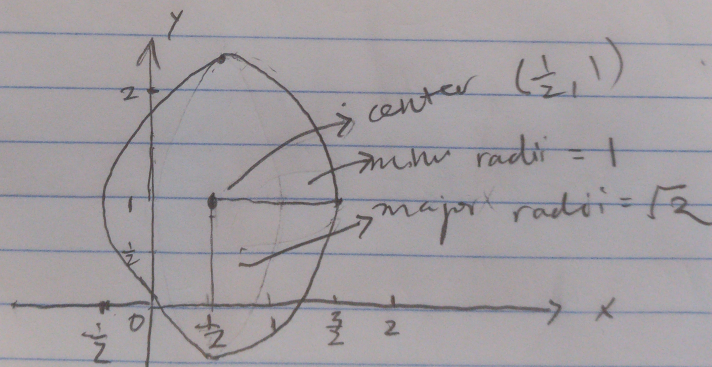 y
2
center (1/2, 1)
minor radii = 1
1
major radii = √2
1/2
0
-1/2
1/2
1
3/2
2
x